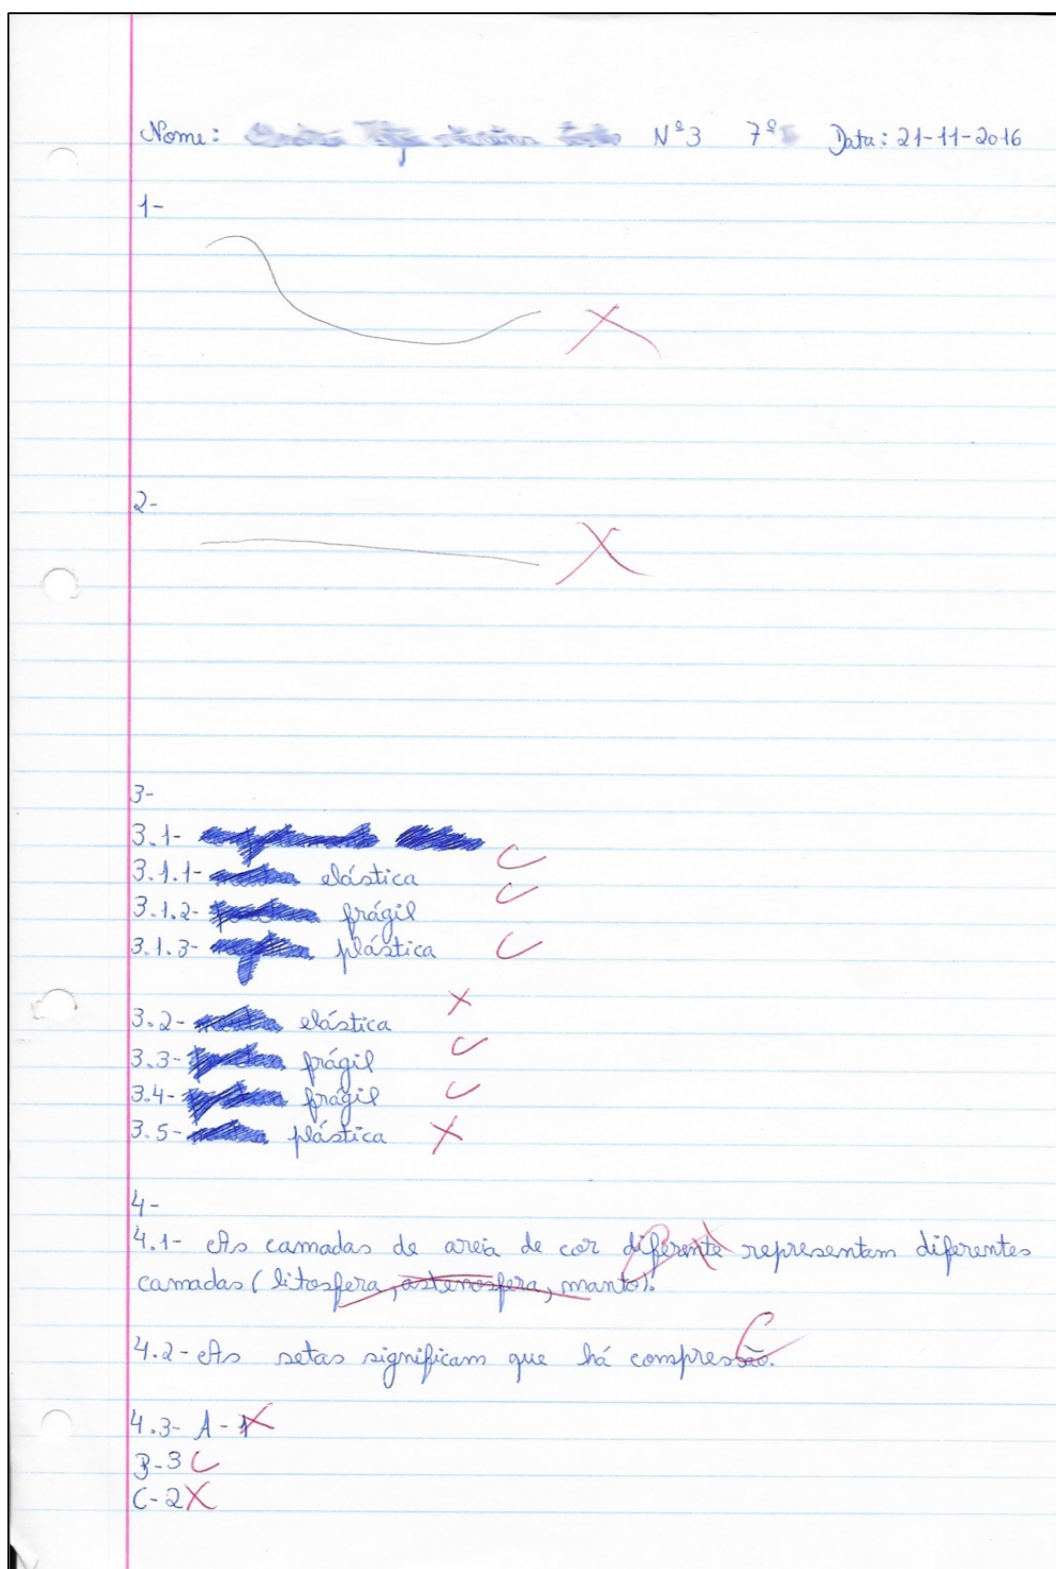 Nome: Nº3 7º Data: 21-11-2016
1-
2-
3-
3.1-
3.1.1- elástica
3.1.2- frágil
3.1.3- plástica
3.2- elástica
3.3- frágil
3.4- frágil
3.5- plástica
4-
4.1- As camadas de areia de cor diferente representam diferentes
camadas (litosfera, astenosfera, manto).
4.2- As setas significam que há compressão.
4.3- A-1
B-3
C-2